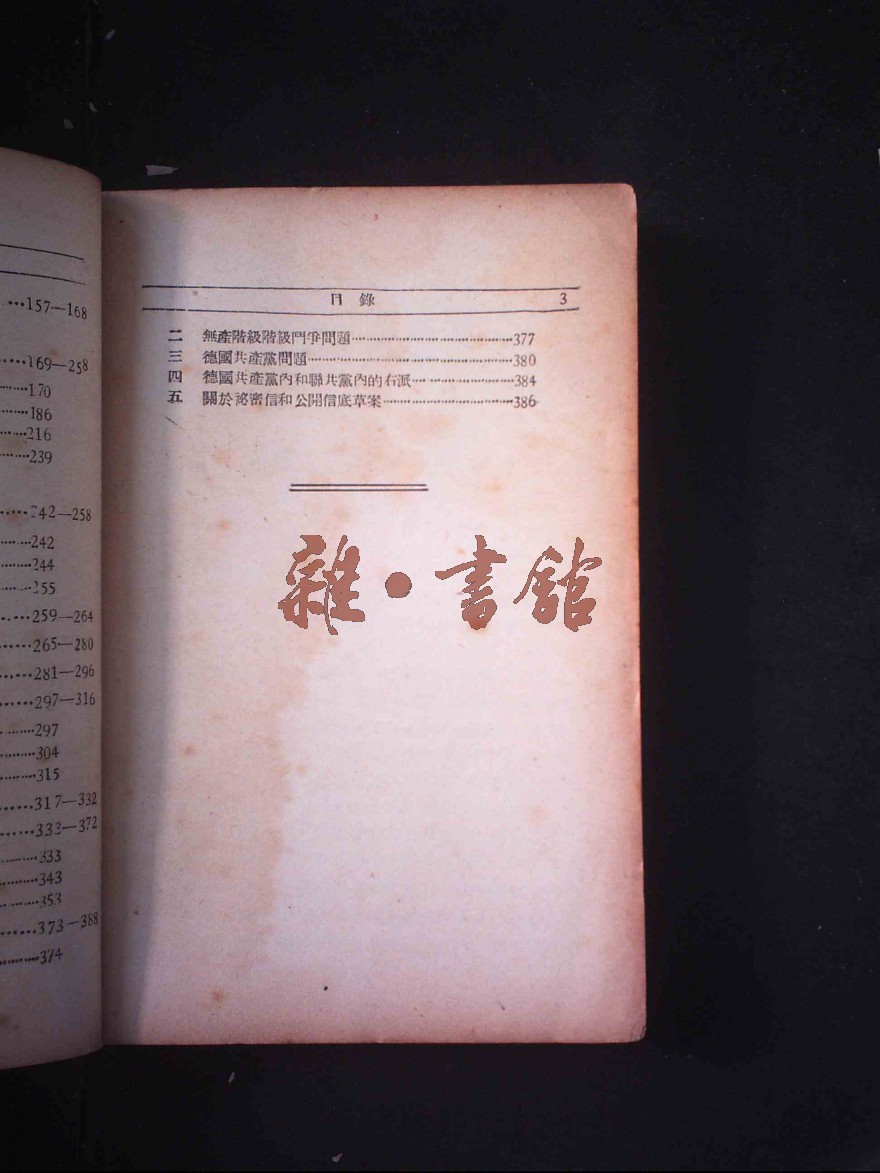 …157—168
…169—258
…170
…186
…216
…239
…242—258
…242
…244
…255
…259—264
…265—280
…281—296
…297—316
…297
…304
…315
…317—332
…333—372
…333
…343
…353
…373—388
…374
目錄 3
二 無產階級階級鬥爭問題…377
三 德國共產黨問題…380
四 德國共產黨內和聯共黨內的右派…384
五 關於祕密信和公開信底草案…386
雜·書館